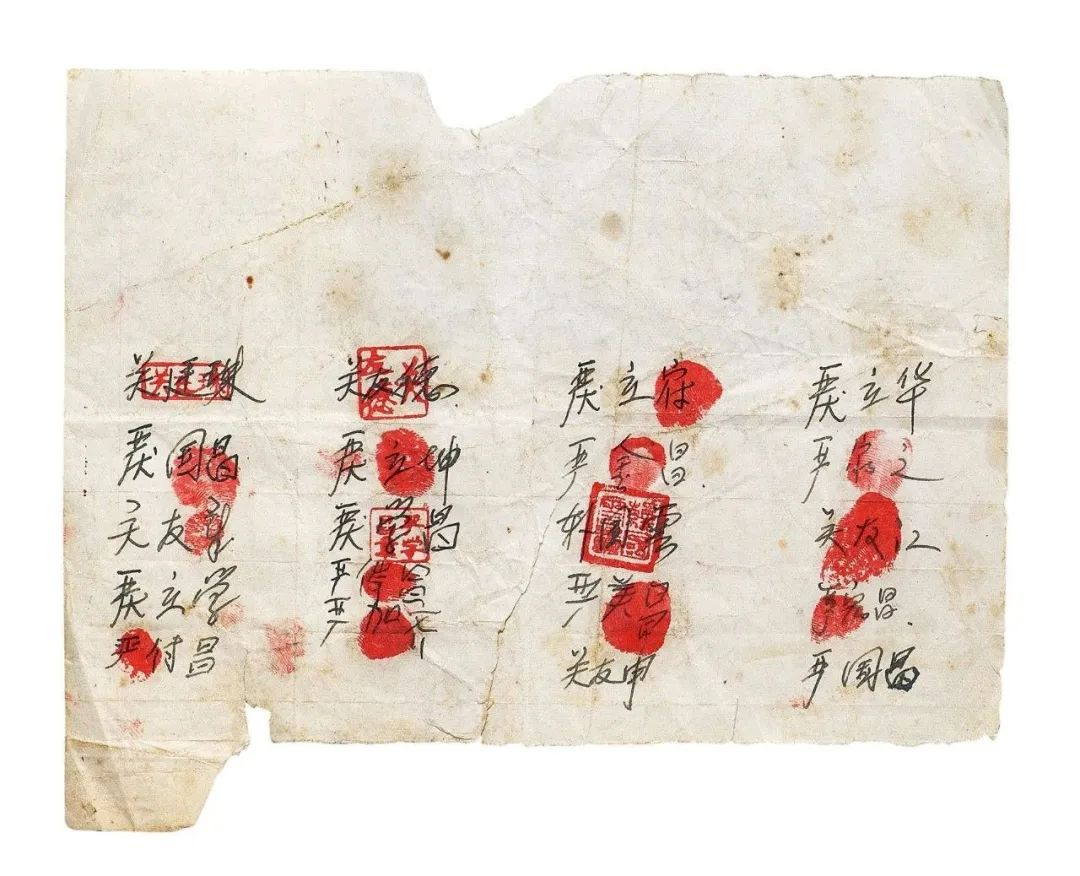 关廷珠 关友德 严立符 严立华
严国昌 严立坤 严金昌 严家芝
关友章 严学昌 韩国雲 关友江
严立学 严俊昌 严美昌 严宏昌
严付昌 严家齐 关友申 严国昌